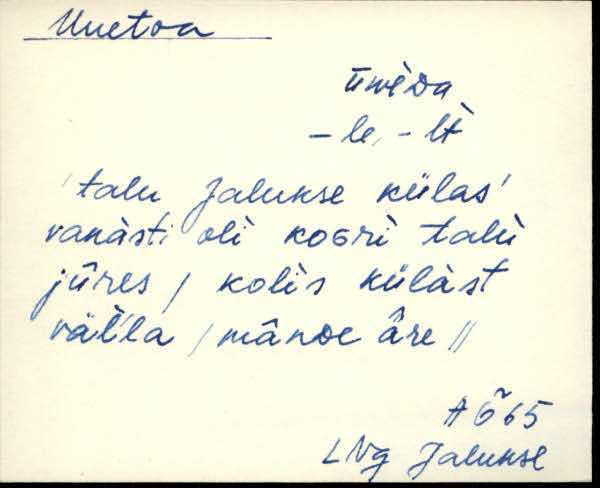 Uuetoa
ūwèDa
- le, - lt̀
'talu Jalukse külas'
vanàsti oli kosri talù
jûres / kolìs külàst
väl̀'la / mânDe âre //
AÕ65
LNg Jalukse